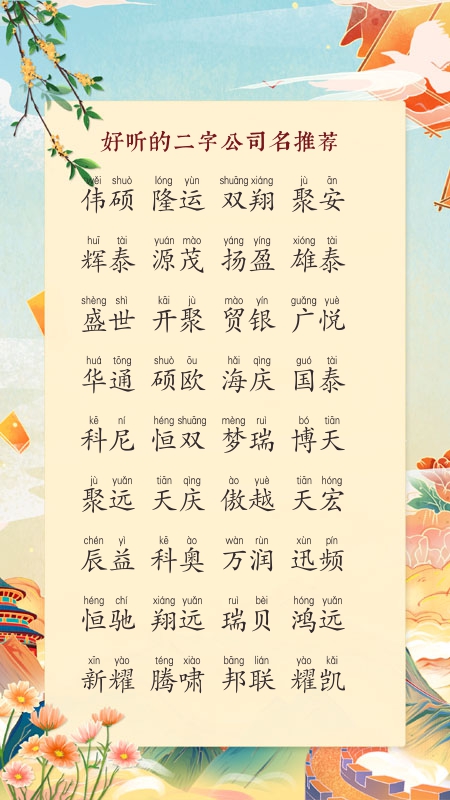 好听的二字公司名推荐
wěi shuò lóng yùn shuāng xiáng jù ān
伟硕 隆运 双翔 聚安
huī tài yuán mào yáng yíng xióng tài
辉泰 源茂 扬盈 雄泰
shèng shì kāi jù mào yín guǎng yuè
盛世 开聚 贸银 广悦
huá tōng shuò ōu hǎi qìng guó tài
华通 硕欧 海庆 国泰
kē ní héng shuāng mèng ruì bó tiān
科尼 恒双 梦瑞 博天
jù yuǎn tiān qìng ào yuè tiān hóng
聚远 天庆 傲越 天宏
chén yì kē ào wàn rùn xùn pín
辰益 科奥 万润 迅频
héng chí xiáng yuǎn ruì bèi hóng yuǎn
恒驰 翔远 瑞贝 鸿远
xīn yào téng xiào bāng lián yào kǎi
新耀 腾啸 邦联 耀凯